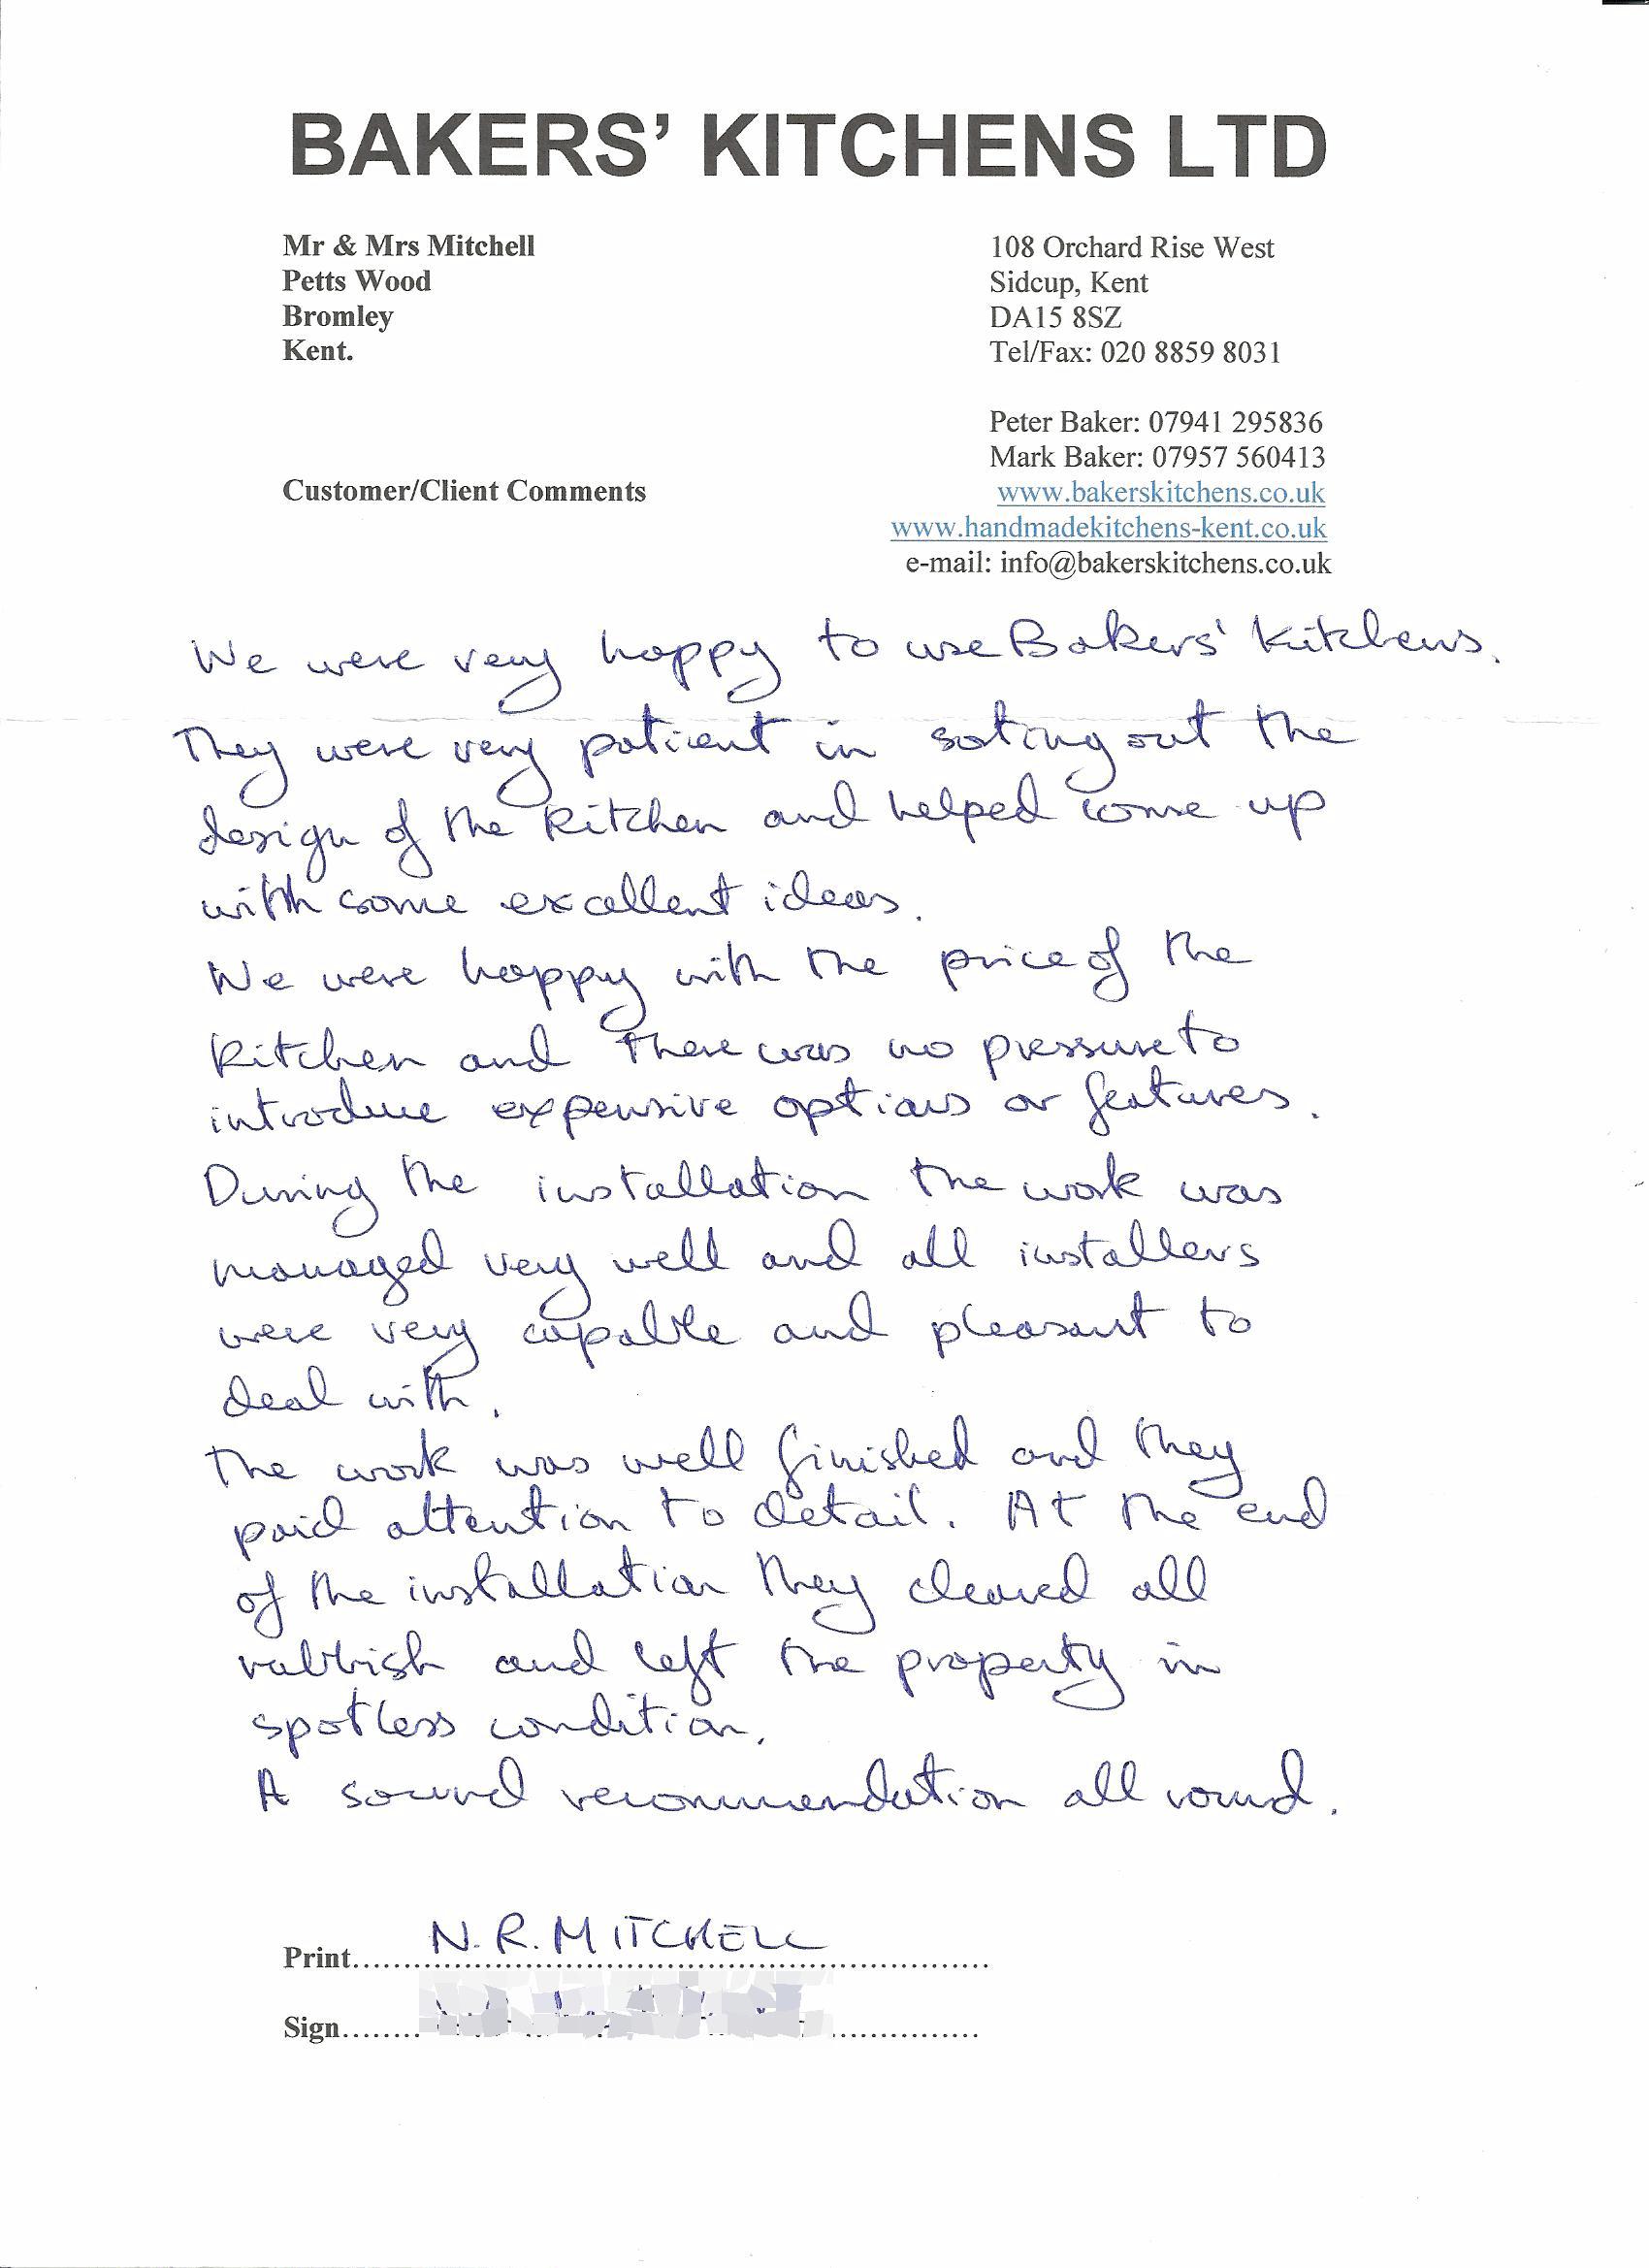 BAKERS' KITCHENS LTD
Mr & Mrs Mitchell
Petts Wood
Bromley
Kent.
108 Orchard Rise West
Sidcup, Kent
DA15 8SZ
Tel/Fax: 020 8859 8031
Peter Baker: 07941 295836
Mark Baker: 07957 560413
www.bakerskitchens.co.uk
www.handmadekitchens-kent.co.uk
e-mail: info@bakerskitchens.co.uk
Customer/Client Comments
We were very happy to use Bakers' Kitchens.
They were very patient in soting out the
design of the kitchen and helped come up
with some excellent ideas.
We were happy with the price of the
kitchen and there was no pressure to
introduce expensive options or features.
During the installation the work was
managed very well and all installers
were very capable and pleasant to
deal with.
The work was well finished and they
paid attention to detail. At the end
of the installation they cleared all
rubbish and left the property in
spotless condition.
A sound recommendation all round.
Print....N.R. MITCHELL....
Sign........